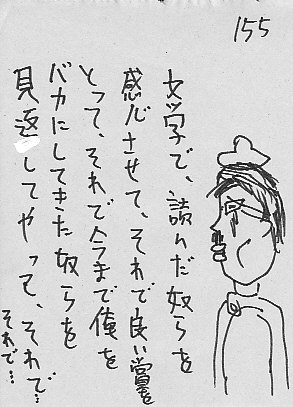 155
文学で、読んだ奴らを
感心させて、それで良い賞を
とって、それで今まで俺を
バカにしてきた奴らを
見返してやって、それで…
それで…